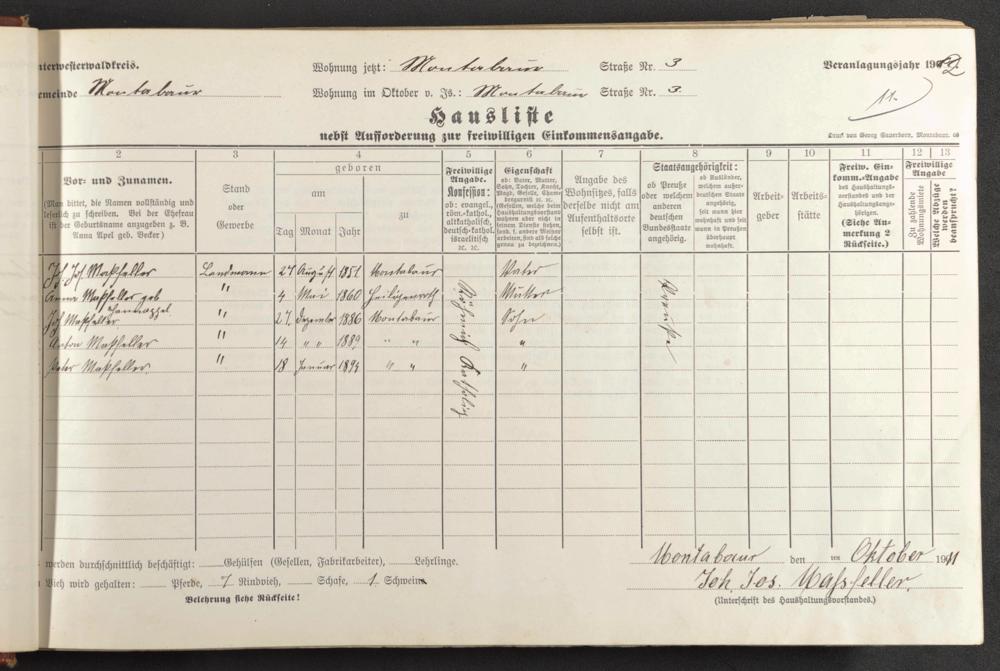 nterwesterwaldkreis.
Wohnung jetzt: Montabaur Straße Nr. 3
Veranlagungsjahr 1912
emeinde Montabaur
Wohnung im Oktober v. Js.: Montabaur Straße Nr. 3.
11.
Hausliste
nebst Aufforderung zur freiwilligen Einkommensangabe.
Druck von Georg Sauerborn, Montabaur.
2 3 4 5 6 7 8 9 10 11 12 13
Vor- und Zunamen.
(Man bittet, die Namen vollständig und
leserlich zu schreiben. Bei der Ehefrau
ist der Geburtsname anzugeben z. B.
Anna Apel geb. Becker)
Stand
oder
Gewerbe
geboren
am
zu
Tag Monat Jahr
Freiwillige
Angabe.
Konfession:
ob: evangel.,
röm.-kathol.,
altkatholisch,
deutsch-kathol.
israelitisch
ec. ec.
Eigenschaft
ob: Vater, Mutter,
Sohn, Tochter, Knecht,
Magd, Geselle, Cham-
bregarnist ec. ec.
(Gesellen, welche beim
Haushaltungsvorstand
wohnen aber nicht in
seinem Dienste stehen,
sond. f. andere Meister
arbeiten, sind als solche
genau zu bezeichnen.)
Angabe des
Wohnsitzes, falls
derselbe nicht am
Aufenthaltsorte
selbst ist.
Staatsangehörigkeit:
ob Preuße
oder welchem
anderen
deutschen
Bundesstaate
angehörig.
ob Ausländer,
welchem außer-
deutschen Staate
angehörig,
seit wann hier
wohnhaft und seit
wann in Preußen
überhaupt
wohnhaft.
Arbeit-
geber
Arbeits-
stätte
Freiw. Ein-
komm.-Angabe
des Haushaltungs-
vorstandes und der
Haushaltungsange-
hörigen.
(Siehe An-
merkung 2
Rückseite.)
Freiwillige
Angabe
Zu zahlende
Wohnungsmiete
Welche Abzüge
werden
beansprucht?
Joh. Jos. Maßfeller Landmann 27 August 1851 Montabaur Vater
Anna Maßfeller geb. " 4 Mai 1860 Heiligenroth Mutter
Jos Maßfeller " 27. Dezember 1886 Montabaur Sohn
Anton Maßfeller " 14 " " 1889 " " "
Peter Maßfeller. " 18 Januar 1894 " " "
Römisch Katholig
Preuße
werden durchschnittlich beschäftigt: Gehülfen (Gesellen, Fabrikarbeiter), Lehrlinge.
Vieh wird gehalten: Pferde, 7 Rindvieh, Schafe, 1 Schwein
Belehrung siehe Rückseite!
Montabaur den ten Oktober 1911
Joh. Jos. Massfeller.
(Unterschrift des Haushaltungsvorstandes.)